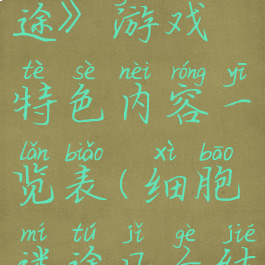 途》游戏
tè sè nèi róng yī
特色内容一
lǎn biǎo xì bāo
览表(细胞
mí tú jǐ gè jié
迷途几个结